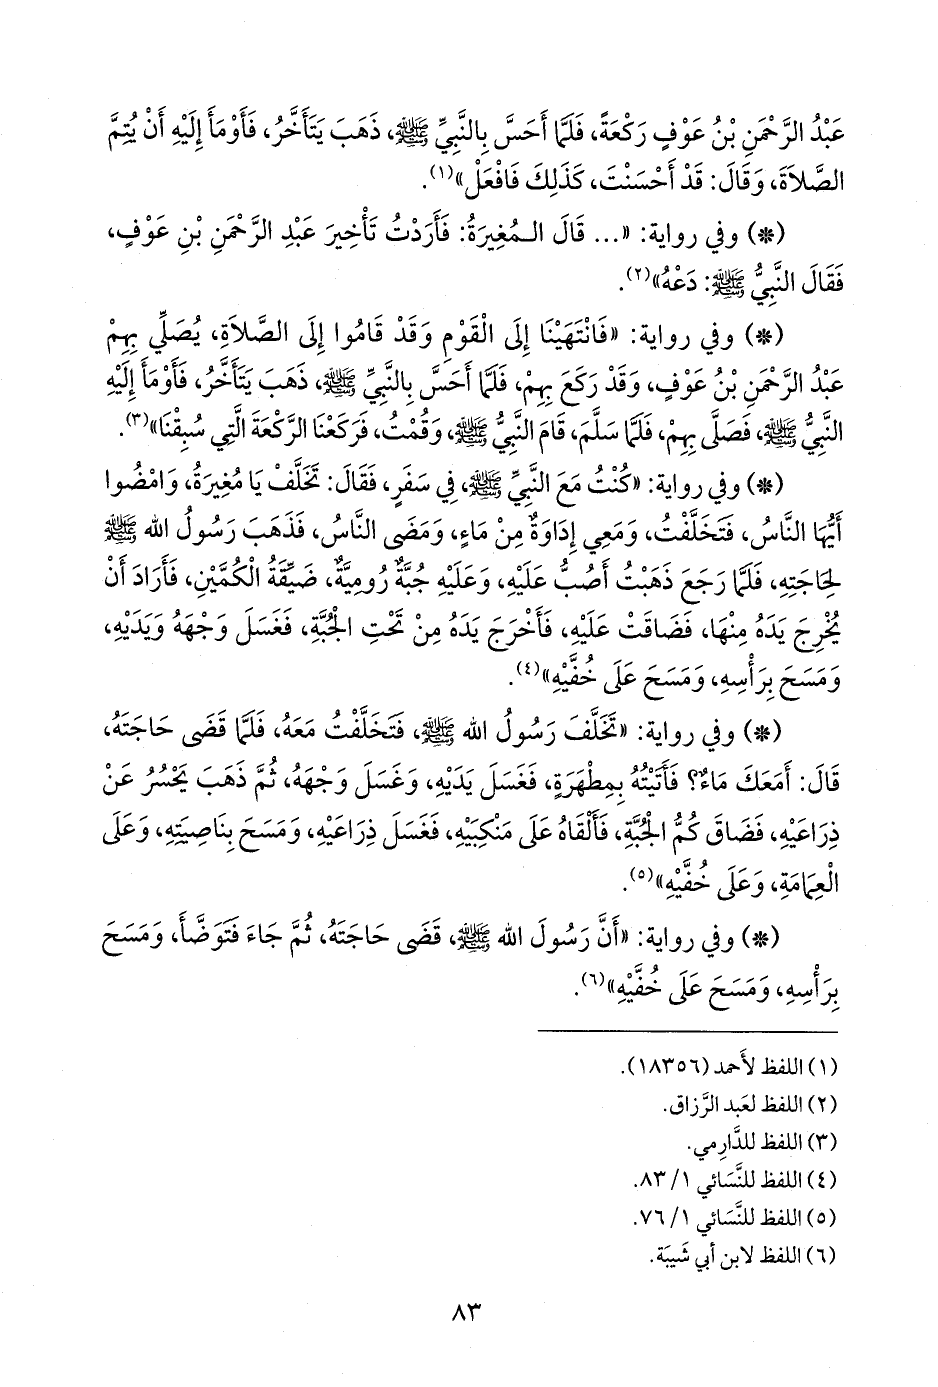 عَبْدُ الرَّحْمَنِ بْنُ عَوْفٍ رَكْعَةً، فَلَمَّا أَحَسَّ بِالنَّبِيِّ ﷺ، ذَهَبَ يَتَأَخَّرُ، فَأَوْمَأَ إِلَيْهِ أَنْ يُتِمَّ
الصَّلاَةَ، وَقَالَ: قَدْ أَحْسَنْتَ، كَذَلِكَ فَافْعَلْ»(١).
(*) وفي رواية: «... قَالَ الـمُغِيرَةُ: فَأَرَدْتُ تَأْخِيرَ عَبْدِ الرَّحْمَنِ بْنِ عَوْفٍ،
فَقَالَ النَّبِيُّ ﷺ: دَعْهُ»(٢).
(*) وفي رواية: «فَانْتَهَيْنَا إِلَى الْقَوْمِ وَقَدْ قَامُوا إِلَى الصَّلاَةِ، يُصَلِّي بِهِمْ
عَبْدُ الرَّحْمَنِ بْنُ عَوْفٍ، وَقَدْ رَكَعَ بِهِمْ، فَلَمَّا أَحَسَّ بِالنَّبِيِّ ﷺ، ذَهَبَ يَتَأَخَّرُ، فَأَوْمَأَ إِلَيْهِ
النَّبِيُّ ﷺ، فَصَلَّى بِهِمْ، فَلَمَّا سَلَّمَ، قَامَ النَّبِيُّ ﷺ، وَقُمْتُ، فَرَكَعْنَا الرَّكْعَةَ الَّتِي سُبِقْنَا»(٣).
(*) وفي رواية: «كُنْتُ مَعَ النَّبِيِّ ﷺ، فِي سَفَرٍ، فَقَالَ: تَخَلَّفْ يَا مُغِيرَةُ، وَامْضُوا
أَيُّهَا النَّاسُ، فَتَخَلَّفْتُ، وَمَعِي إِدَاوَةٌ مِنْ مَاءٍ، وَمَضَى النَّاسُ، فَذَهَبَ رَسُولُ الله ﷺ
لِحَاجَتِهِ، فَلَمَّا رَجَعَ ذَهَبْتُ أَصُبُّ عَلَيْهِ، وَعَلَيْهِ جُبَّةٌ رُومِيَّةٌ، ضَيِّقَةُ الْكُمَّيْنِ، فَأَرَادَ أَنْ
يُخْرِجَ يَدَهُ مِنْهَا، فَضَاقَتْ عَلَيْهِ، فَأَخْرَجَ يَدَهُ مِنْ تَحْتِ الجُبَّةِ، فَغَسَلَ وَجْهَهُ وَيَدَيْهِ،
وَمَسَحَ بِرَأْسِهِ، وَمَسَحَ عَلَى خُفَّيْهِ»(٤).
(*) وفي رواية: «تَخَلَّفَ رَسُولُ الله ﷺ، فَتَخَلَّفْتُ مَعَهُ، فَلَمَّا قَضَى حَاجَتَهُ،
قَالَ: أَمَعَكَ مَاءٌ؟ فَأَتَيْتُهُ بِمِطْهَرَةٍ، فَغَسَلَ يَدَيْهِ، وَغَسَلَ وَجْهَهُ، ثُمَّ ذَهَبَ يَحْسُرُ عَنْ
ذِرَاعَيْهِ، فَضَاقَ كُمُّ الجُبَّةِ، فَأَلْقَاهُ عَلَى مَنْكِبَيْهِ، فَغَسَلَ ذِرَاعَيْهِ، وَمَسَحَ بِنَاصِيَتِهِ، وَعَلَى
الْعِمَامَةِ، وَعَلَى خُفَّيْهِ»(٥).
(*) وفي رواية: «أَنَّ رَسُولَ الله ﷺ، قَضَى حَاجَتَهُ، ثُمَّ جَاءَ فَتَوَضَّأَ، وَمَسَحَ
بِرَأْسِهِ، وَمَسَحَ عَلَى خُفَّيْهِ»(٦).
(١) اللفظ لأَحمد (١٨٣٥٦).
(٢) اللفظ لعَبد الرَّزاق.
(٣) اللفظ للدَّارِمي.
(٤) اللفظ للنَّسَائي ١/ ٨٣.
(٥) اللفظ للنَّسَائي ١/ ٧٦.
(٦) اللفظ لابن أبي شَيبَة.
٨٣